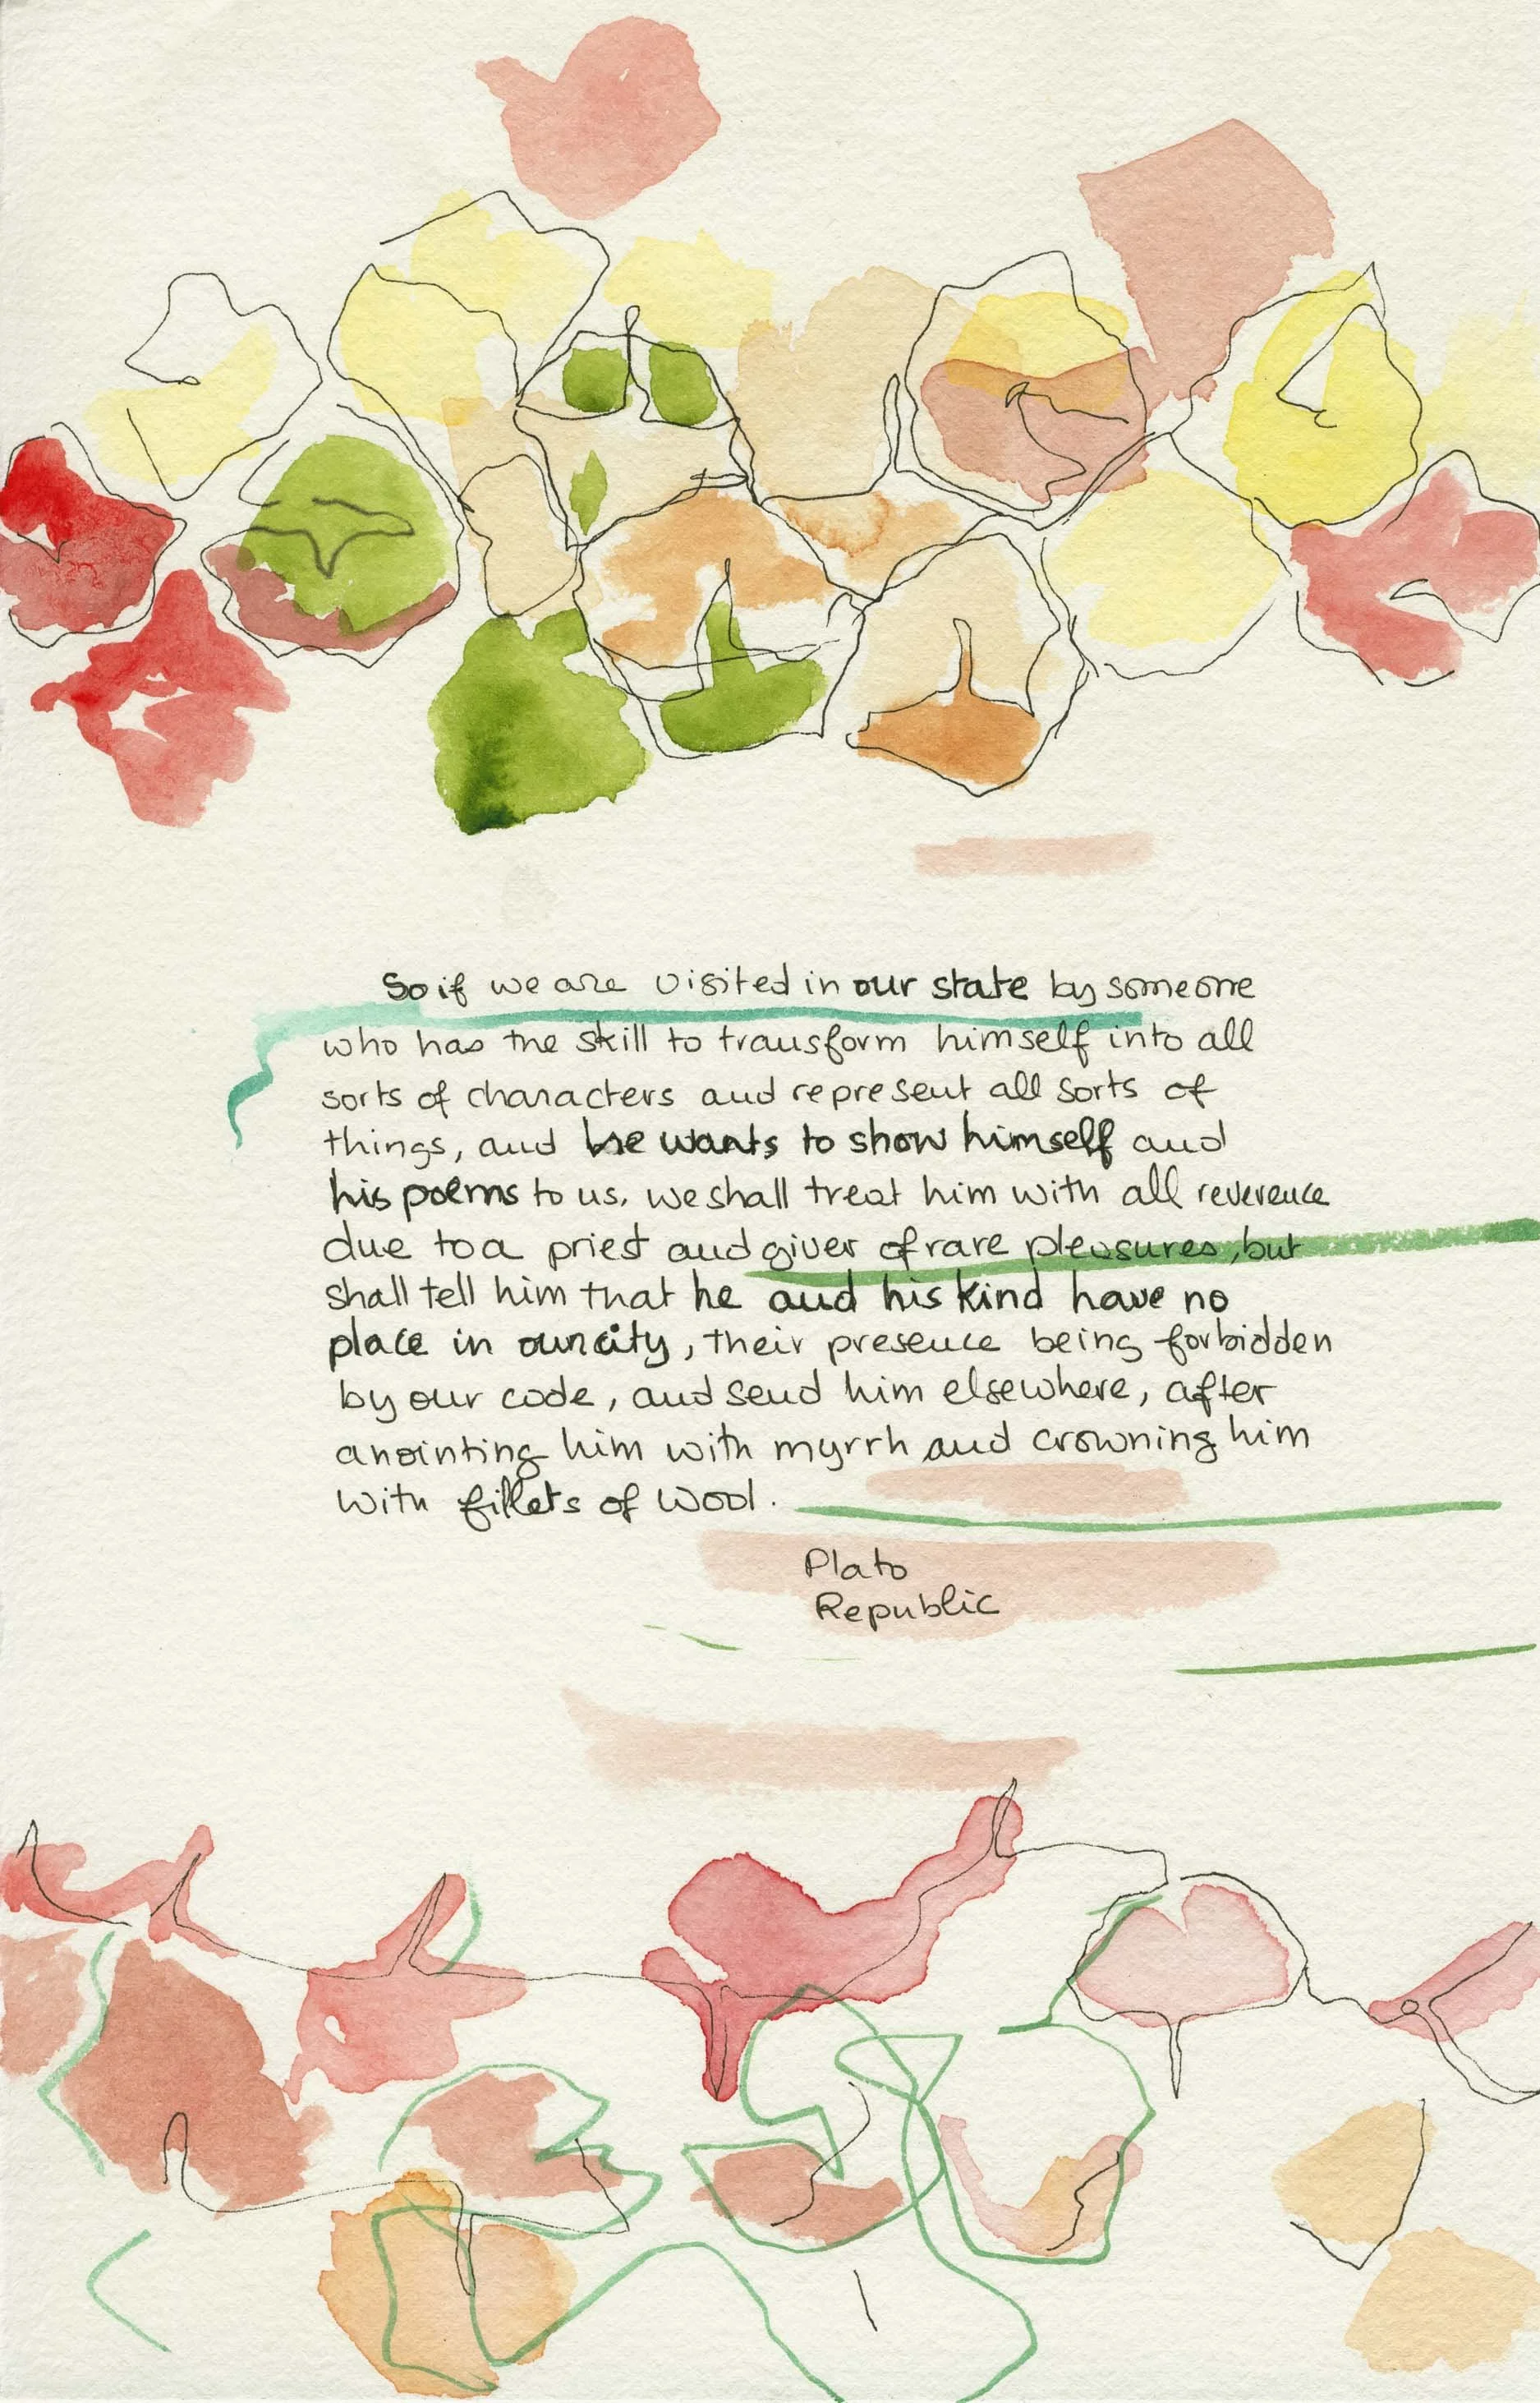 So if we are visited in our state by someone
who has the skill to transform himself into all
sorts of characters and represent all sorts of
things, and he wants to show himself and
his poems to us, we shall treat him with all reverence
due to a priest and giver of rare pleasures, but
shall tell him that he and his kind have no
place in our city, their presence being forbidden
by our code, and send him elsewhere, after
anointing him with myrrh and crowning him
with fillets of wool.
Plato
Republic